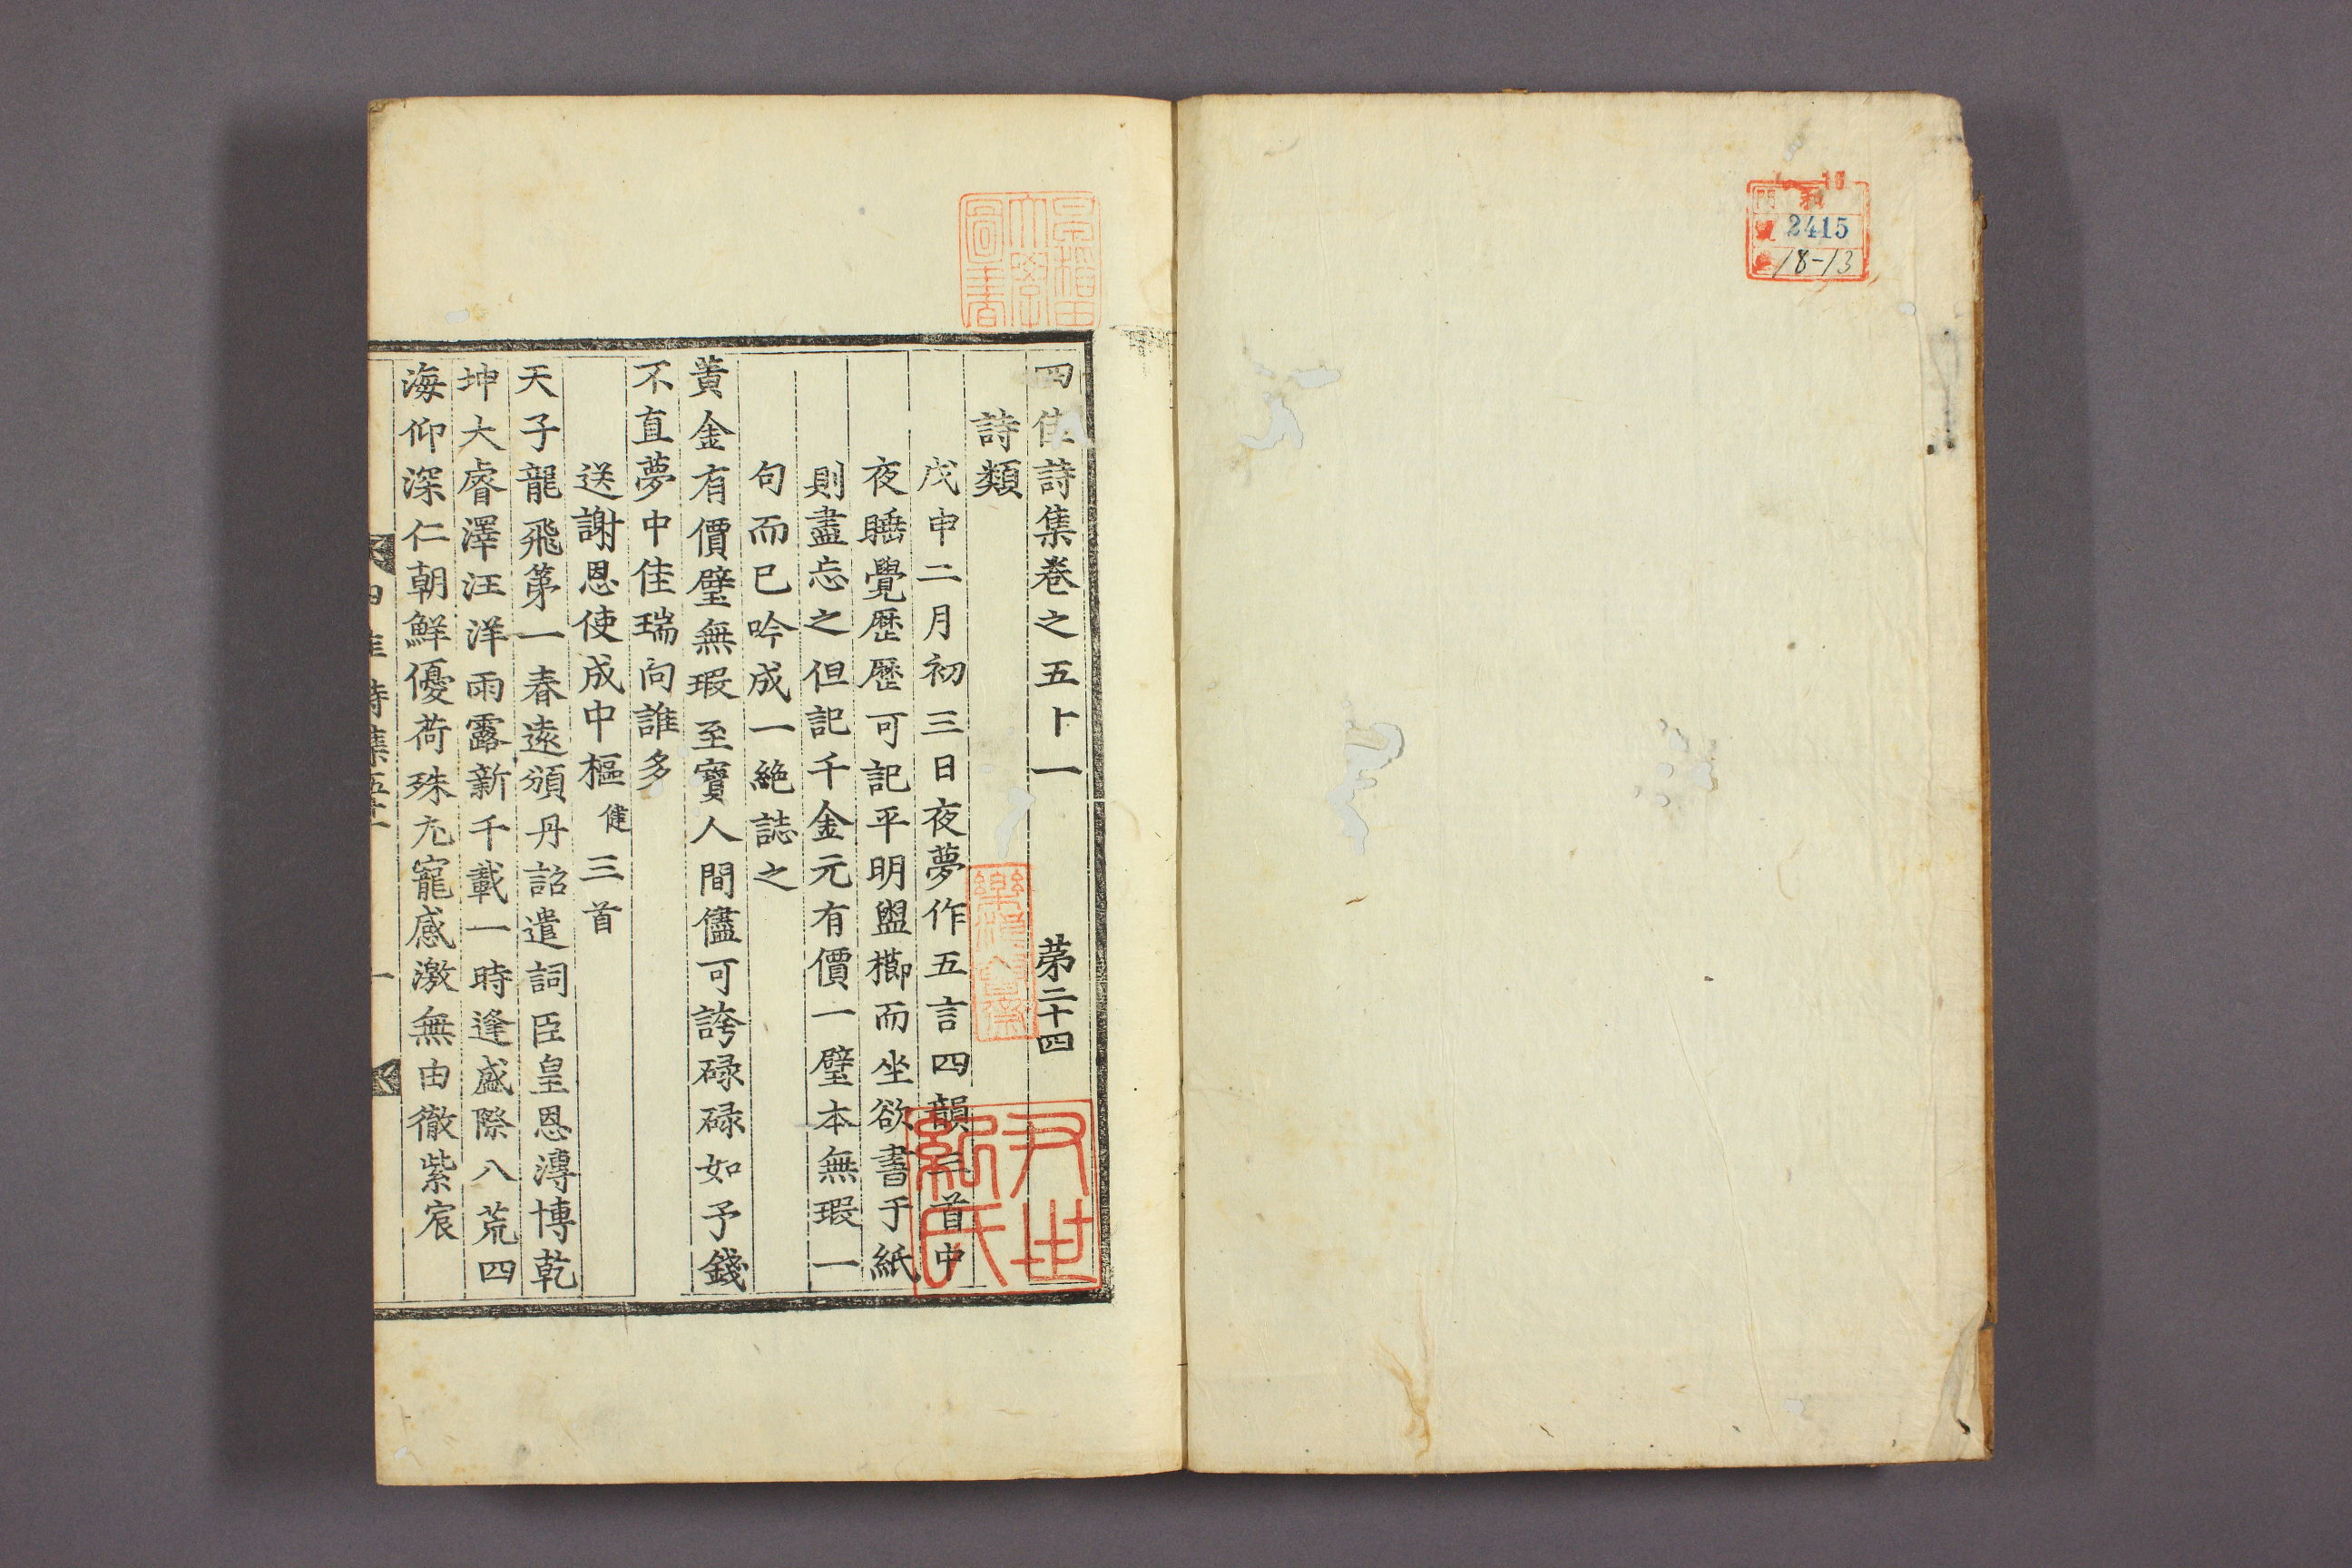 和
門
號
2415
18-13
早稻田
大學
圖書
四佳詩集卷之五十一 第二十四
詩類
戊申二月初三日夜夢作五言四韻二首中
夜睡覺歷歷可記平明盥櫛而坐欲書于紙
則盡忘之但記千金元有價一璧本無瑕一
句而已吟成一絶誌之
黃金有價璧無瑕至寶人間儘可誇碌碌如予錢
不直夢中佳瑞向誰多
送謝恩使成中樞健三首
天子龍飛第一春遠頒丹詔遣詞臣皇恩溥博乾
坤大睿澤汪洋雨露新千載一時逢盛際八荒四
海仰深仁朝鮮優荷殊尤寵感激無由徹紫宸
一
尹世
紀氏